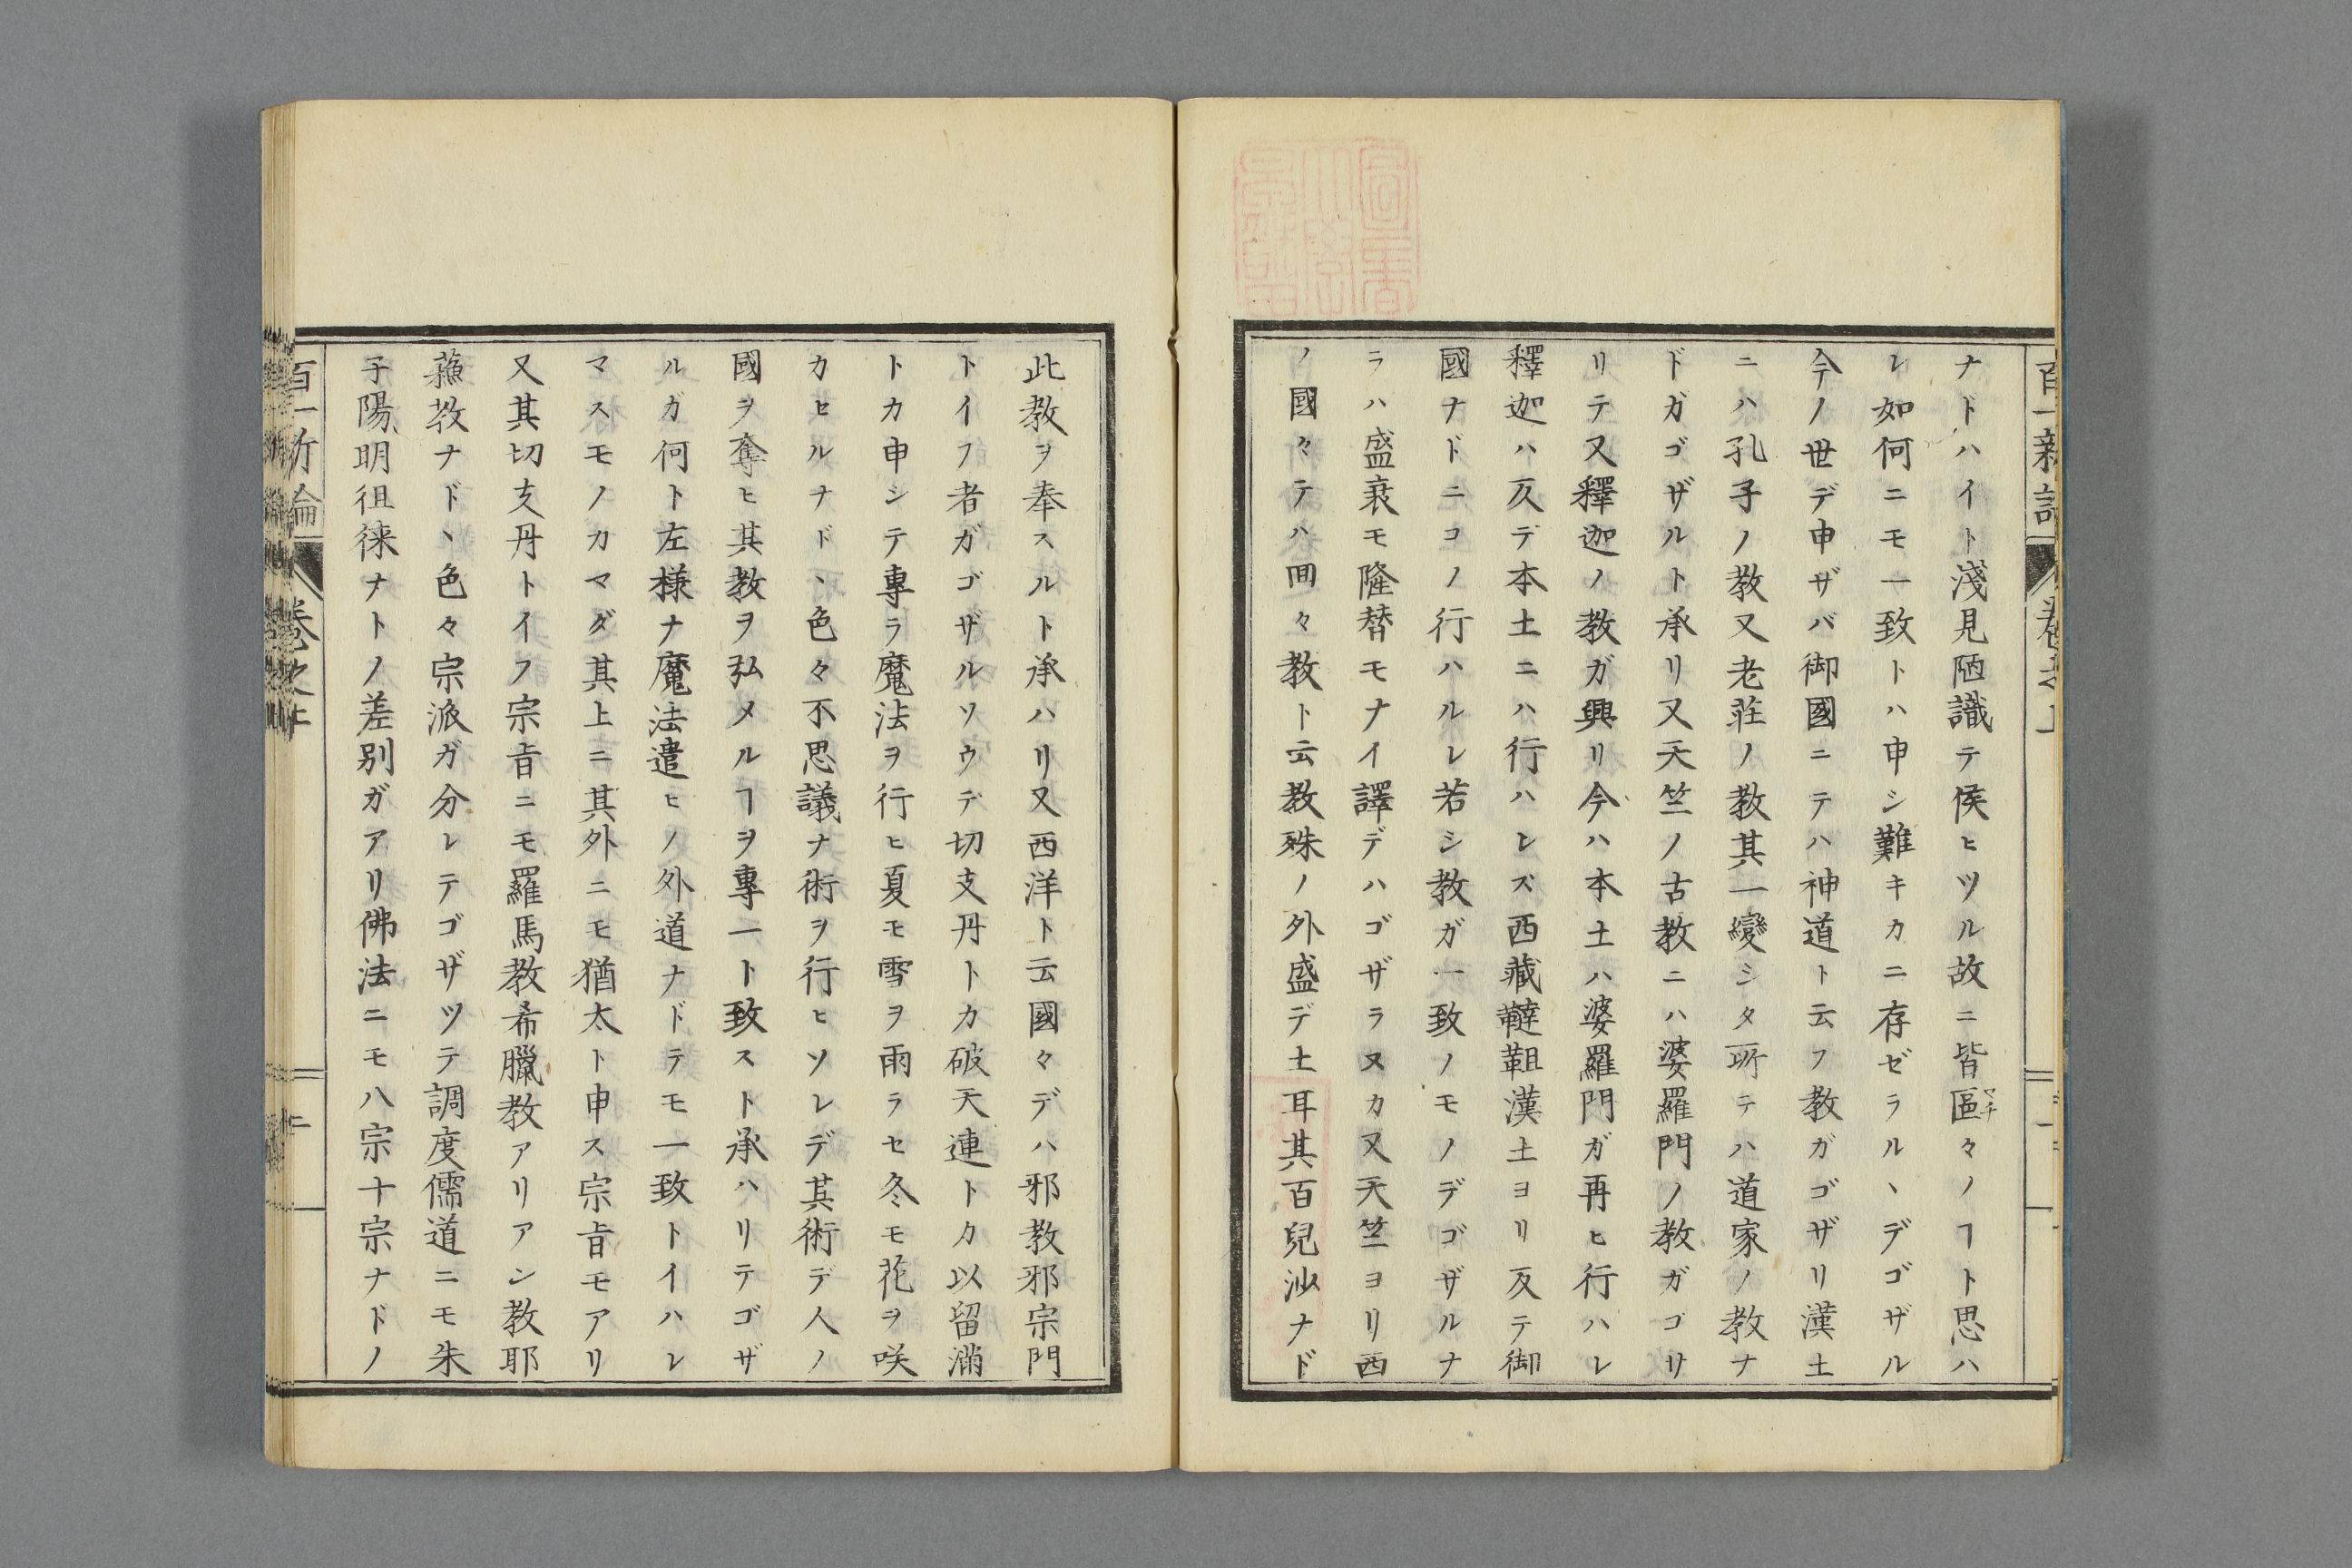 百一新論 卷之上
ナドハイト淺見陋識テ侯ヒツル故ニ皆區々ノヿト思ハ
マチ
レ如何ニモ一致トハ申シ難キカニ存ゼラルヽデゴザル
今ノ世デ申ザバ御國ニテハ神道ト云フ教ガゴザリ漢土
ニハ孔子ノ教又老莊ノ教其一變シタ所テハ道家ノ教ナ
ドガゴザルト承リ又天竺ノ古教ニハ婆羅門ノ教ガゴサ
リテ又釋迦ノ教ガ興リ今ハ本土ハ婆羅門ガ再ヒ行ハレ
釋迦ハ反デ本土ニハ行ハレズ西藏韃靼漢土ヨリ反テ御
國ナドニコノ行ハルレ若シ教ガ一致ノモノデゴザルナ
ラハ盛衰モ隆替モナイ譯デハゴザラヌカ又天竺ヨリ西
ノ國々テハ囬々教ト云教殊ノ外盛デ土耳其百兒沙ナド
此教ヲ奉スルト承ハリ又西洋ト云國々デハ邪教邪宗門
トイフ者ガゴザルソウデ切支丹トカ破天連トカ以留滿
トカ申シテ專ラ魔法ヲ行ヒ夏モ雪ヲ雨ラセ冬モ花ヲ咲
カヒルナドヽ色々不思議ナ術ヲ行ヒソレデ其術デ人ノ
國ヲ奪ヒ其教ヲ弘メルヿヲ專一ト致スト承ハリテゴザ
ルガ何ト左樣ナ魔法遣ヒノ外道ナドテモ一致トイハレ
マスモノカマダ其上ニ其外ニモ猶太ト申ス宗旨モアリ
又其切支丹トイフ宗旨ニモ羅馬教希臘教アリアン教耶
蘓教ナドヽ色々宗派ガ分レテゴザツテ調度儒道ニモ朱
子陽明徂徠ナトノ差別ガアリ佛法ニモ八宗十宗ナドノ
百一新論 卷之上